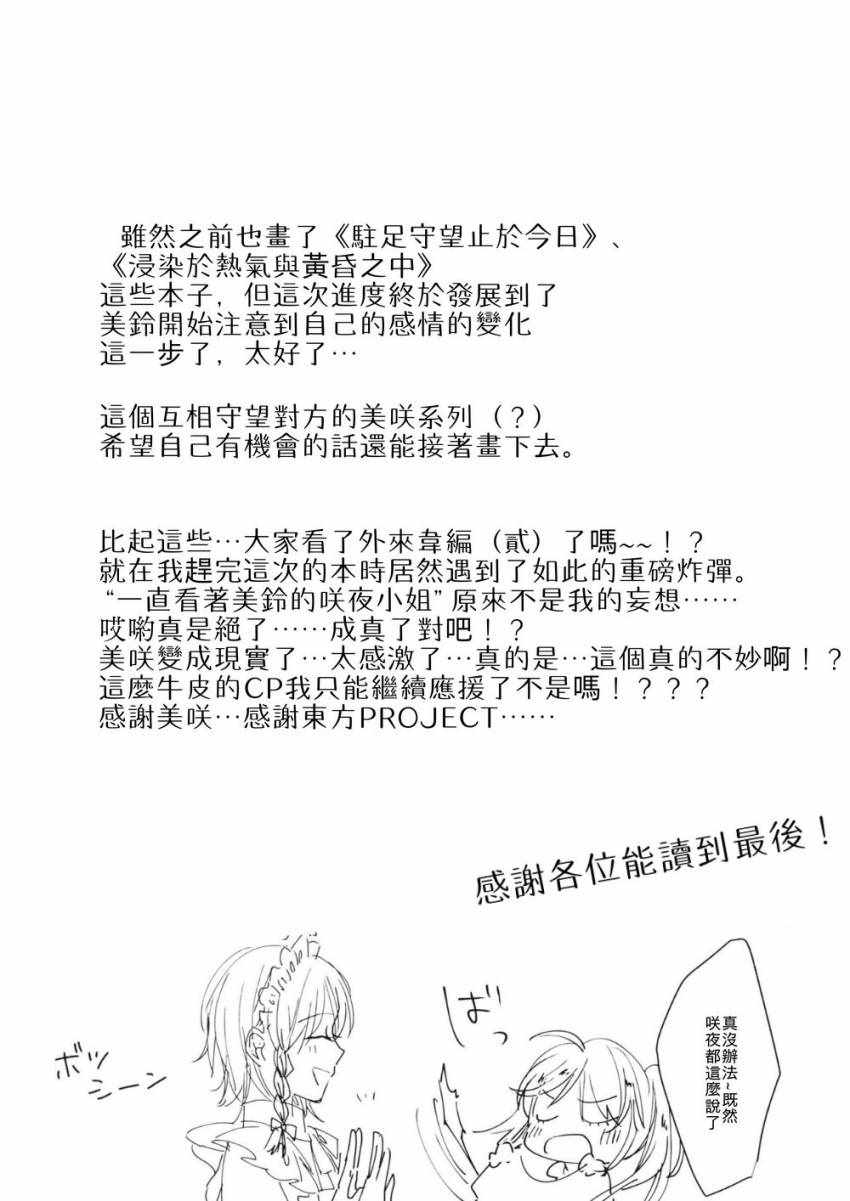 雖然之前也畫了《駐足守望止於今日》、
《浸染於熱氣與黃昏之中》
這些本子，但這次進度終於發展到了
美鈴開始注意到自己的感情的變化
這一步了，太好了…
這個互相守望對方的美咲系列（？）
希望自己有機會的話還能接著畫下去。
比起這些…大家看了外來韋編（貳）了嗎~~！？
就在我趕完這次的本時居然遇到了如此的重磅炸彈。
“一直看著美鈴的咲夜小姐”原來不是我的妄想……
哎喲真是絕了……成真了對吧！？
美咲變成現實了…太感激了…真的是…這個真的不妙啊！？
這麼牛皮的CP我只能繼續應援了不是嗎！？？？
感謝美咲…感謝東方PROJECT……
感謝各位能讀到最後！
真沒辦法~既然
咲夜都這麼說了
ばっ
ボツ
シーン